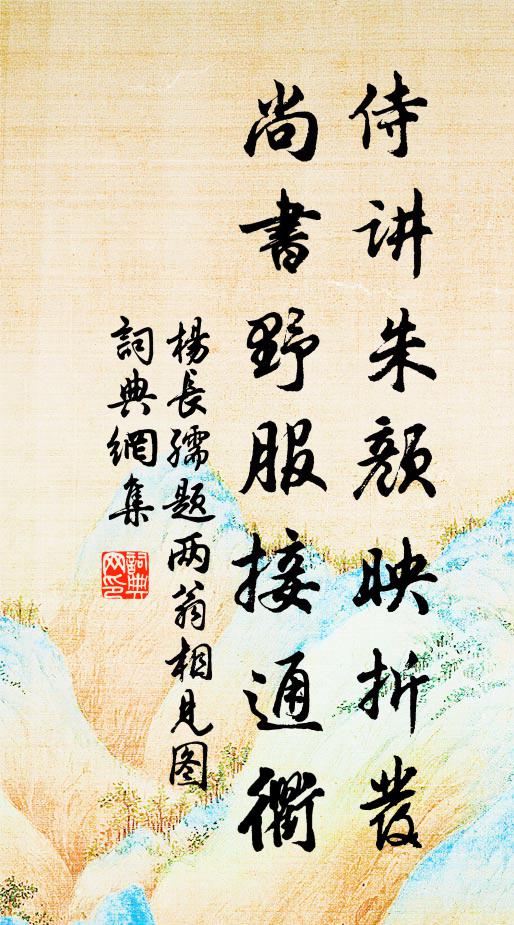 侍讲朱颜映折发
尚書野服接通衢
楊長孺题两翁相见图
詞典網集
詞典网印